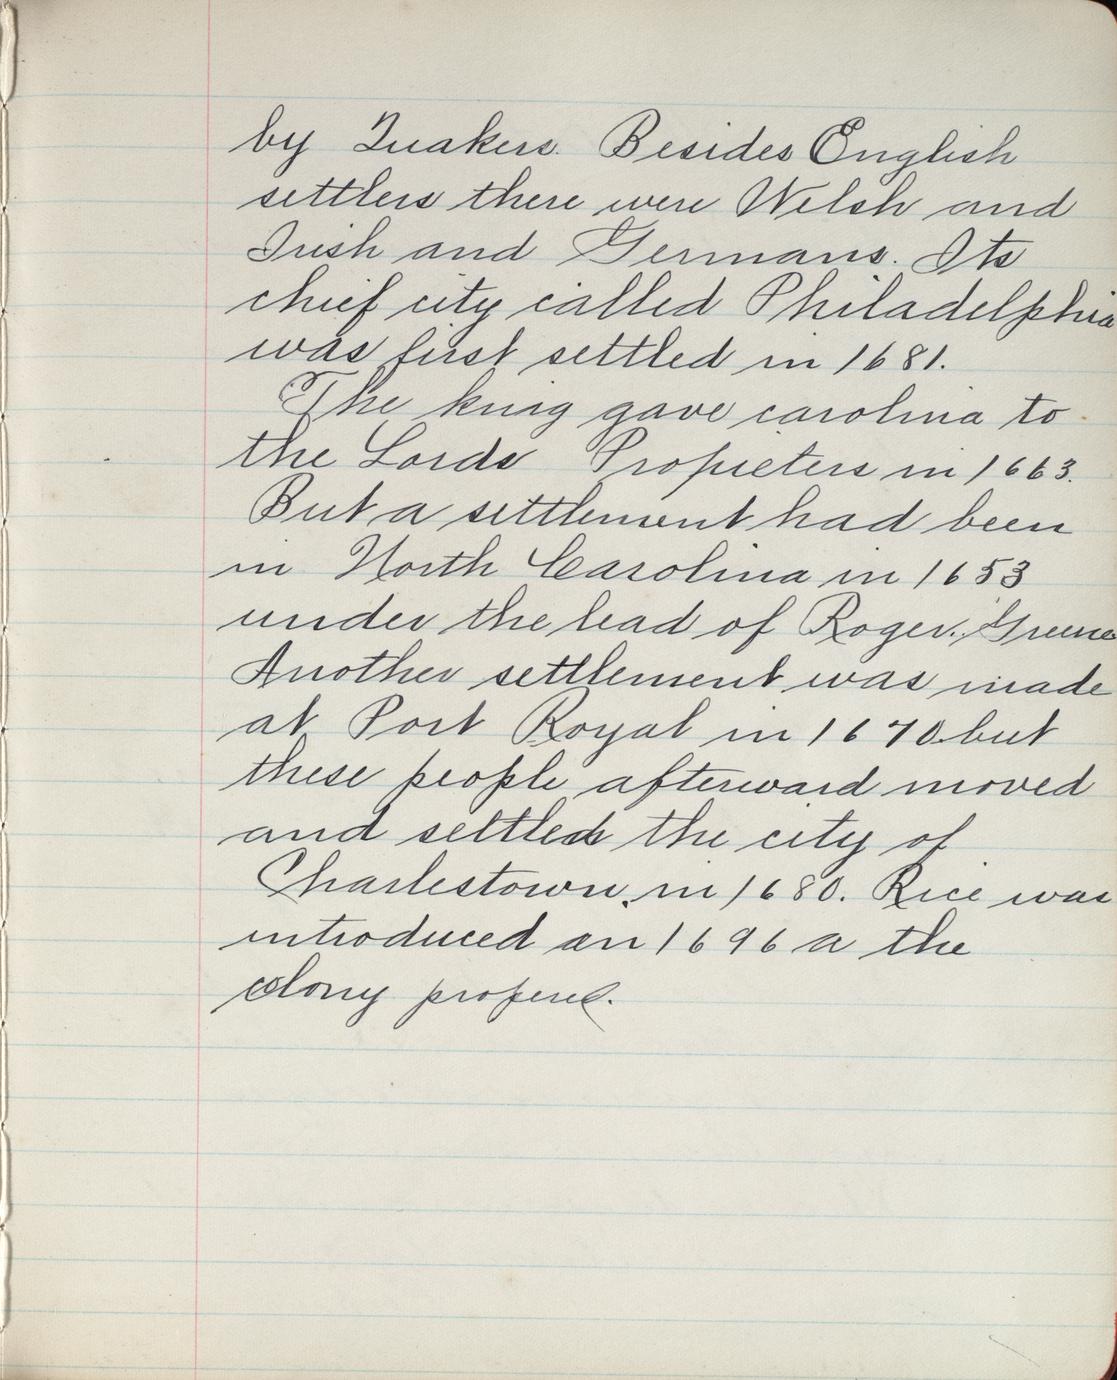 by Quakers. Besides English
settlers there were Welsh and
Irish and Germans. Its
chief city called Philadelphia
was first settled in 1681.
The king gave carolina to
the Lords Propieters in 1663.
But a settlement had been
in North Carolina in 1653
under the lead of Roger. Greene
Another settlement was made
at Port Royal in 1670 but
these people afterward moved
and settled the city of
Charlestown, in 1680. Rice was
introduced an 1696 a the
colony